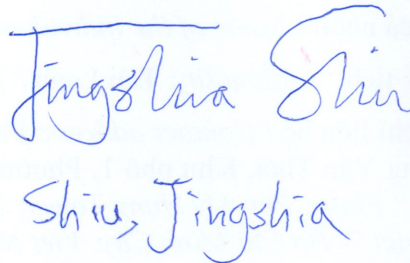 Jingshia Shiu
Shiu, Jingshia